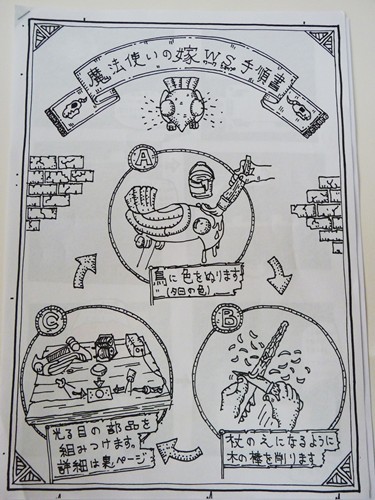 魔法使いの嫁WS手順書
A
鳥に色をぬります
(夕日の色)
B
杖のえになるように
木の棒を削ります
C
光る目の部品を
組みつけます。
詳細は裏ページ